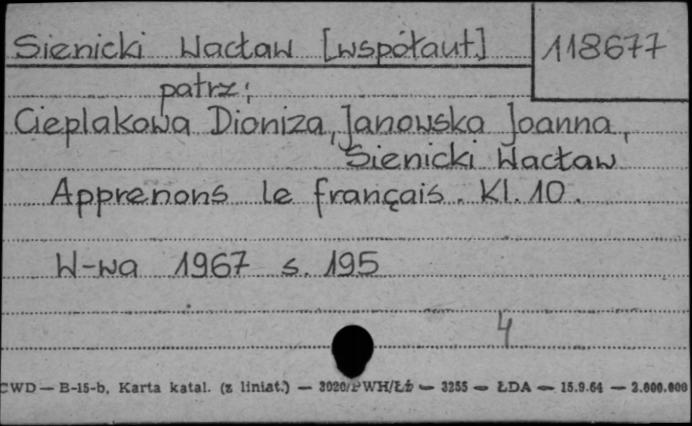 Sienicki Wacław [współaut.] 118677
patrz:
Cieplakowa Dioniza, Janowska Joanna,
Sienicki Wacław
Apprenons le français. Kl. 10.
W-wa 1967 s. 195
4
CWD — B-15-b, Karta katal. (z liniat.) — 3020/PWH/Łż — 3255 — ŁDA — 15.9.64 — 2.000.000